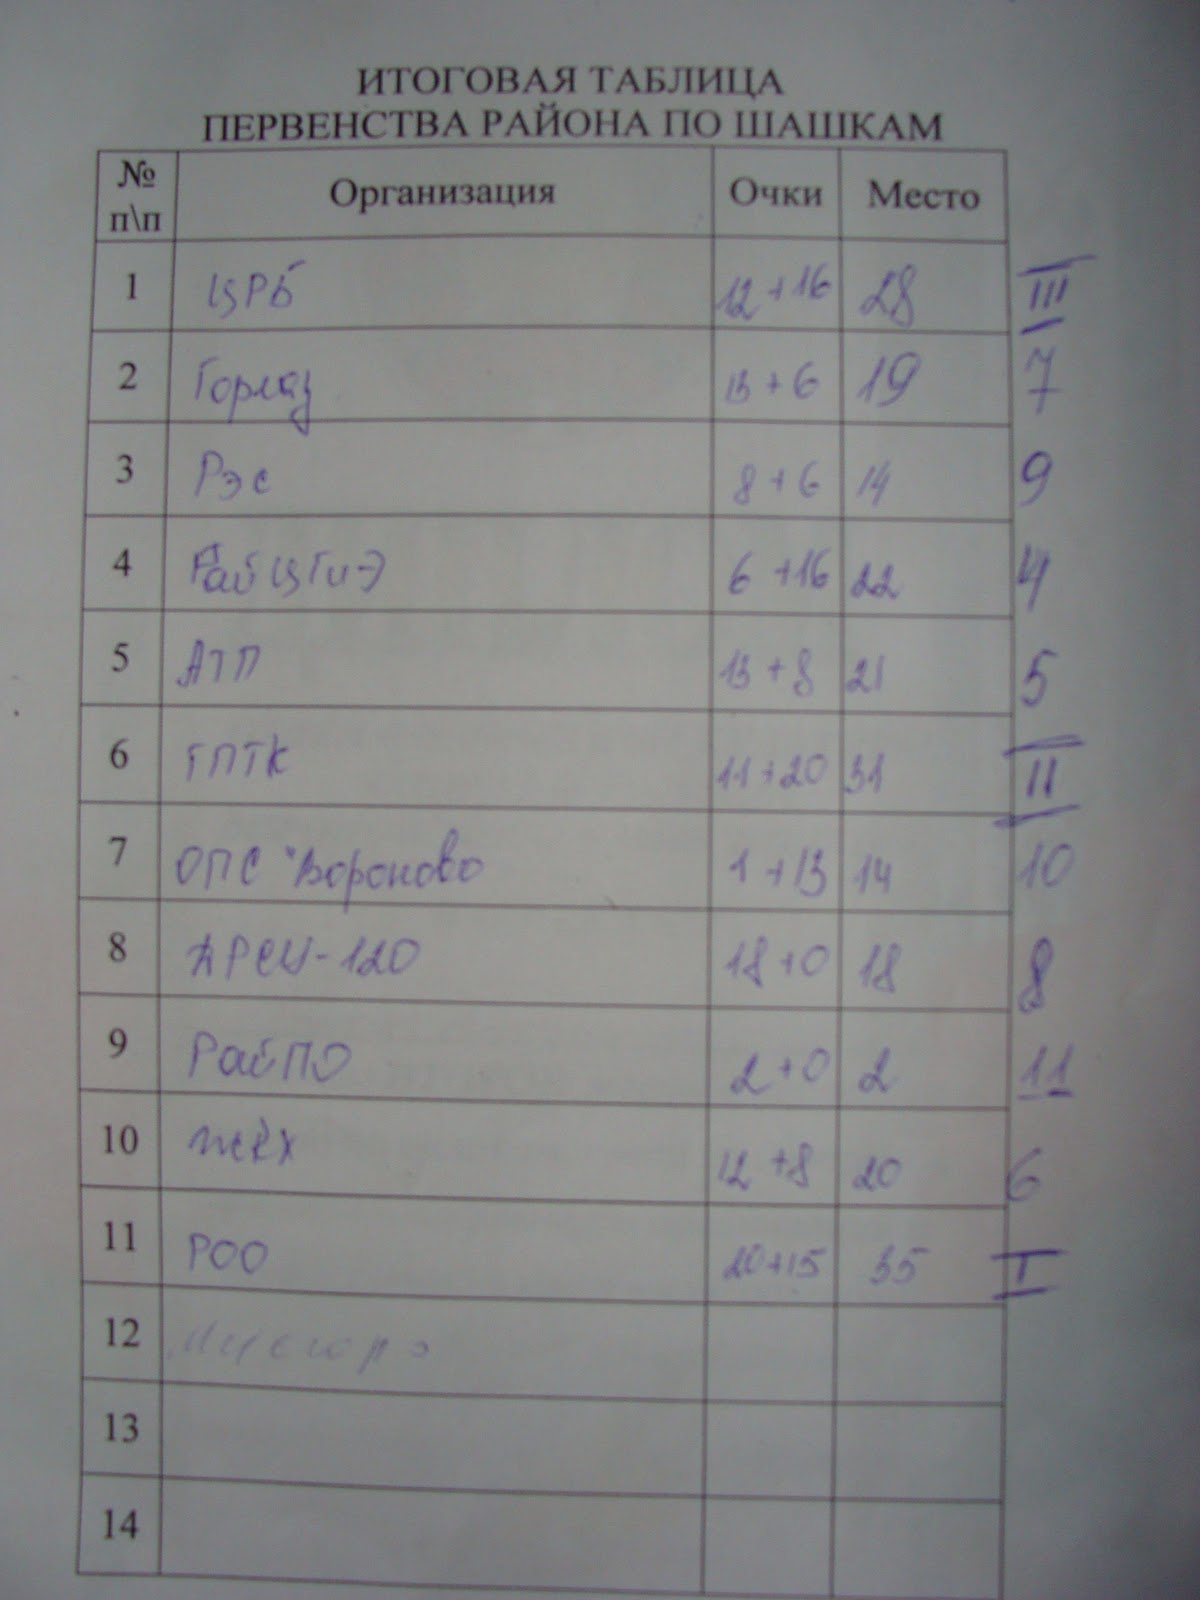 ИТОГОВАЯ ТАБЛИЦА
ПЕРВЕНСТВА РАЙОНА ПО ШАШКАМ
№ п\п Организация Очки Место
1 ЦРБ 12+16 28 III
2 Горгаз 13+6 19 7
3 Рэс 8+6 14 9
4 РайЦГиЭ 6+16 22 4
5 АТП 13+8 21 5
6 ГПТК 11+20 31 II
7 ОПС "Вороново 1+13 14 10
8 ДРСУ-120 18+0 18 8
9 РайПО 2+0 2 11
10 ЖКХ 12+8 20 6
11 РОО 20+15 35 I
12
13
14